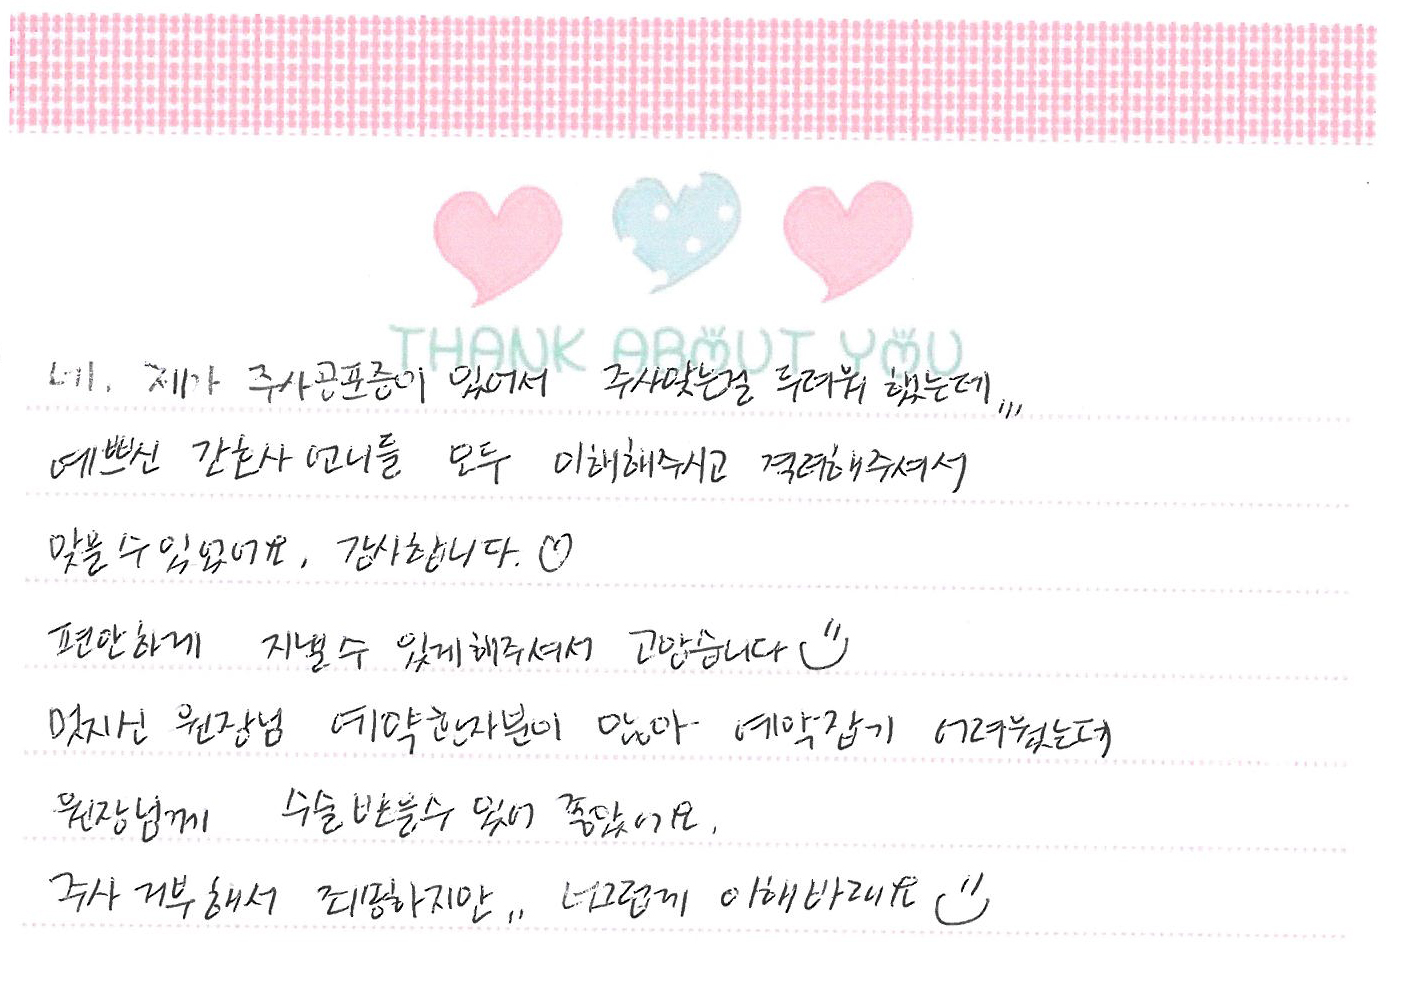 THANK ABOUT YOU
네. 제가 주사공포증이 있어서 주사맞는걸 두려워 했는데,,,
예쁘신 간호사 언니들 모두 이해해주시고 격려해주셔서
맞을 수 있었어요. 감사합니다.♡
편안하게 지낼 수 있게해주셔서 고맙습니다
멋지신 원장님 예약환자분이 많아 예약잡기 어려웠는데
원장님께 수술 받을수 있어 좋았어요.
주사 거부해서 죄송하지만,, 너그럽게 이해바래요